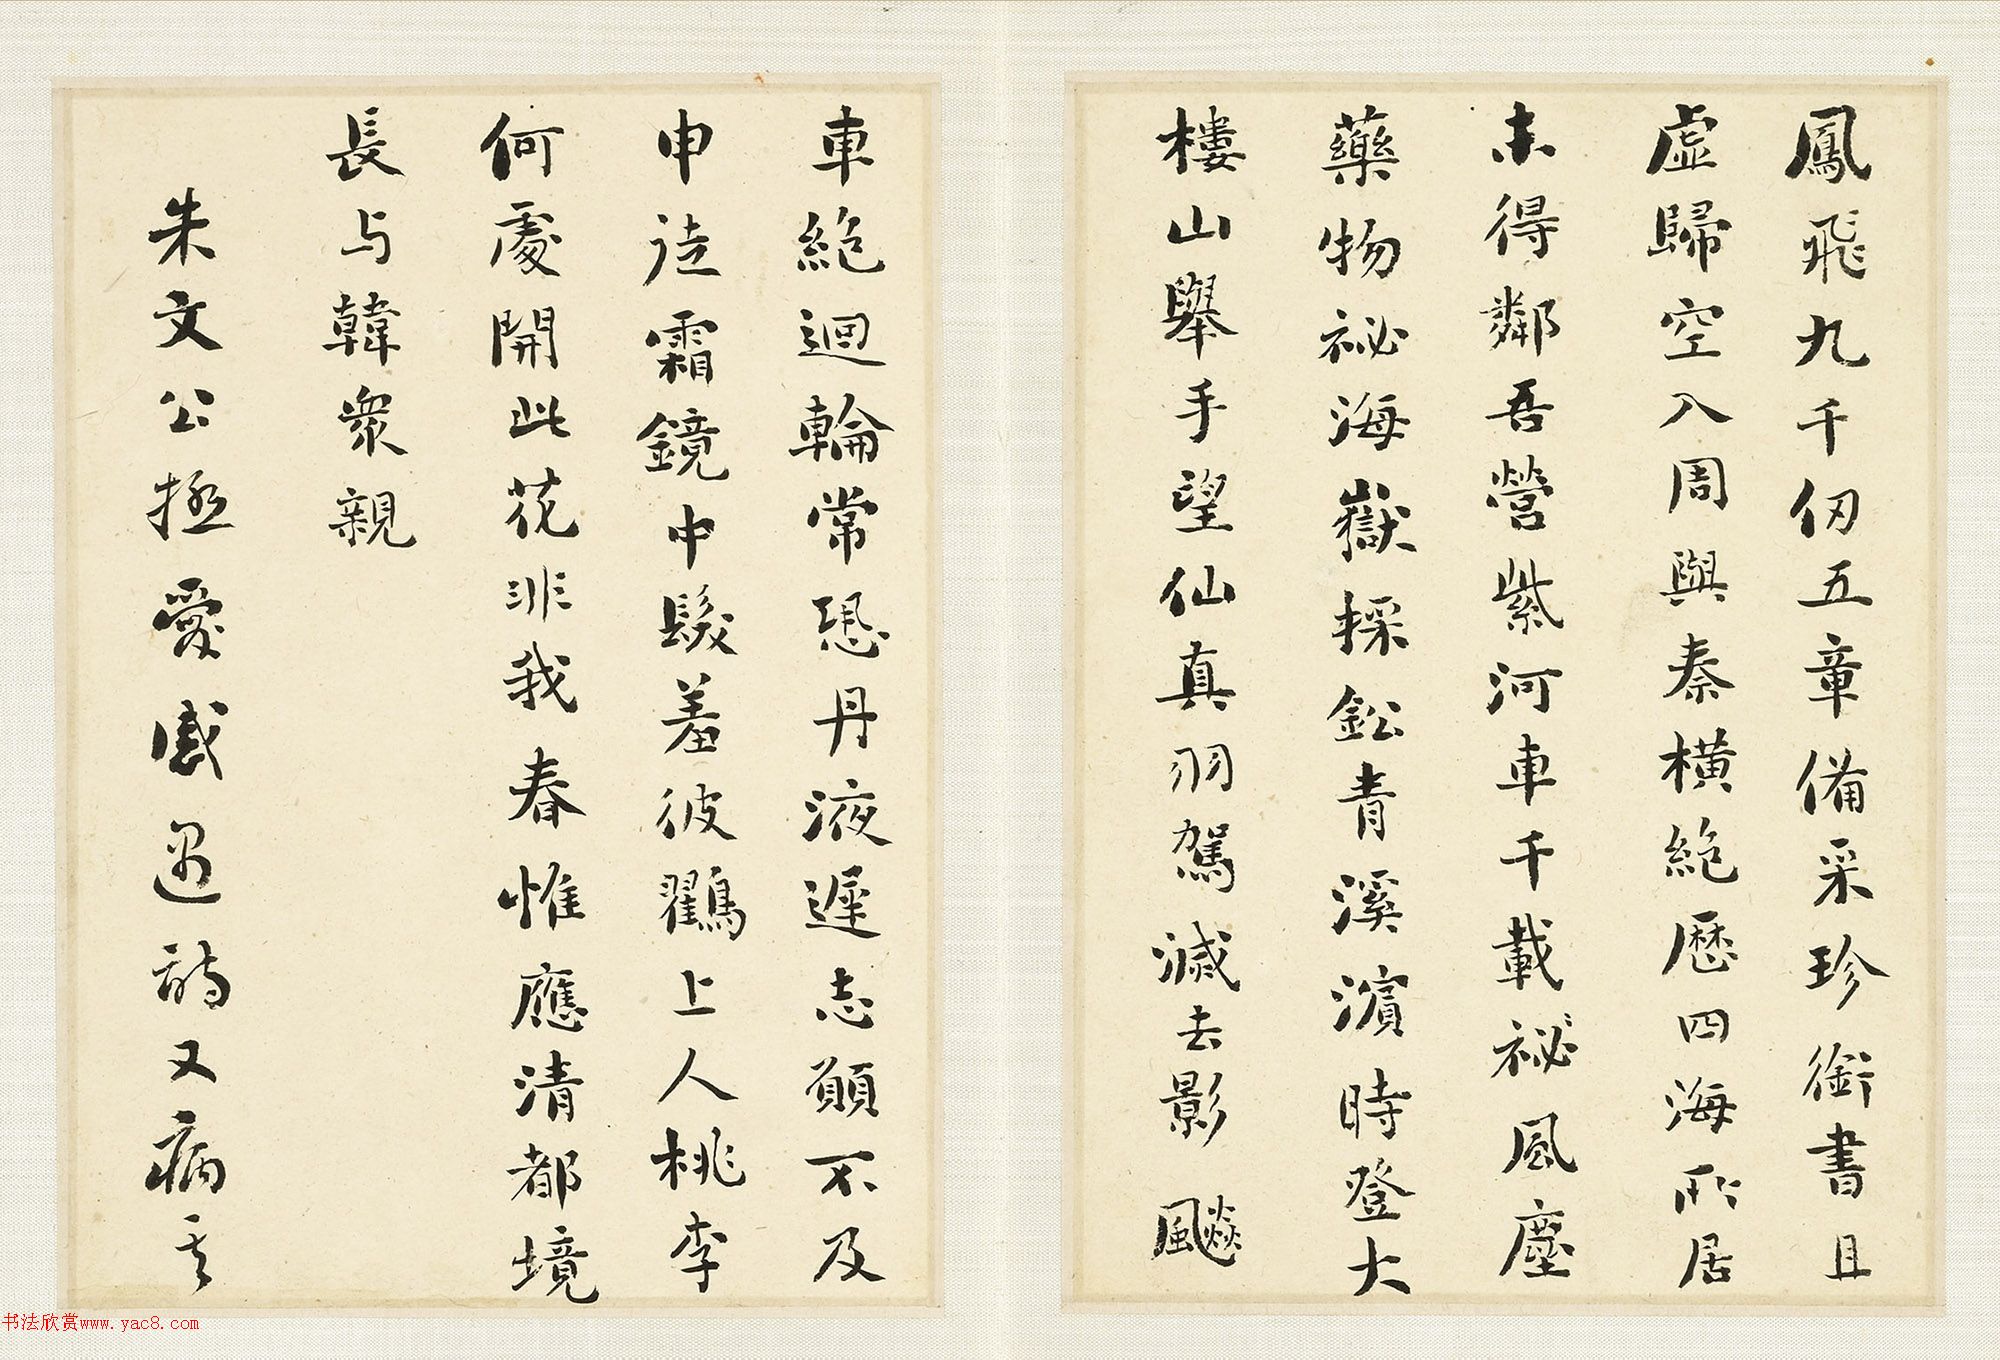 鳳飛九千仞五章備采珍銜書且
虛歸空入周與秦橫絕歷四海所居
未得鄰吾營紫河車千載祕風塵
藥物祕海嶽採鈆青溪濱時登大
樓山舉手望仙真羽駕滅去影飈
車絕迴輪常恐丹液遲志願不及
申徒霜鏡中髮羞彼鶴上人桃李
何處開此花非我春惟應清都境
長与韓衆親
朱文公拯愛感遇詩又病其
书法欣赏www.yac8.com